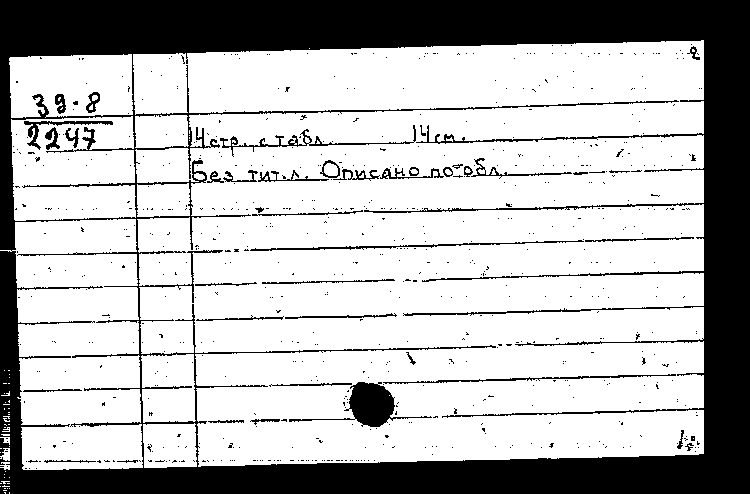 2
39-8
2247
14 стр. с табл. 14 см.
Без тит. л. Описано по обл.